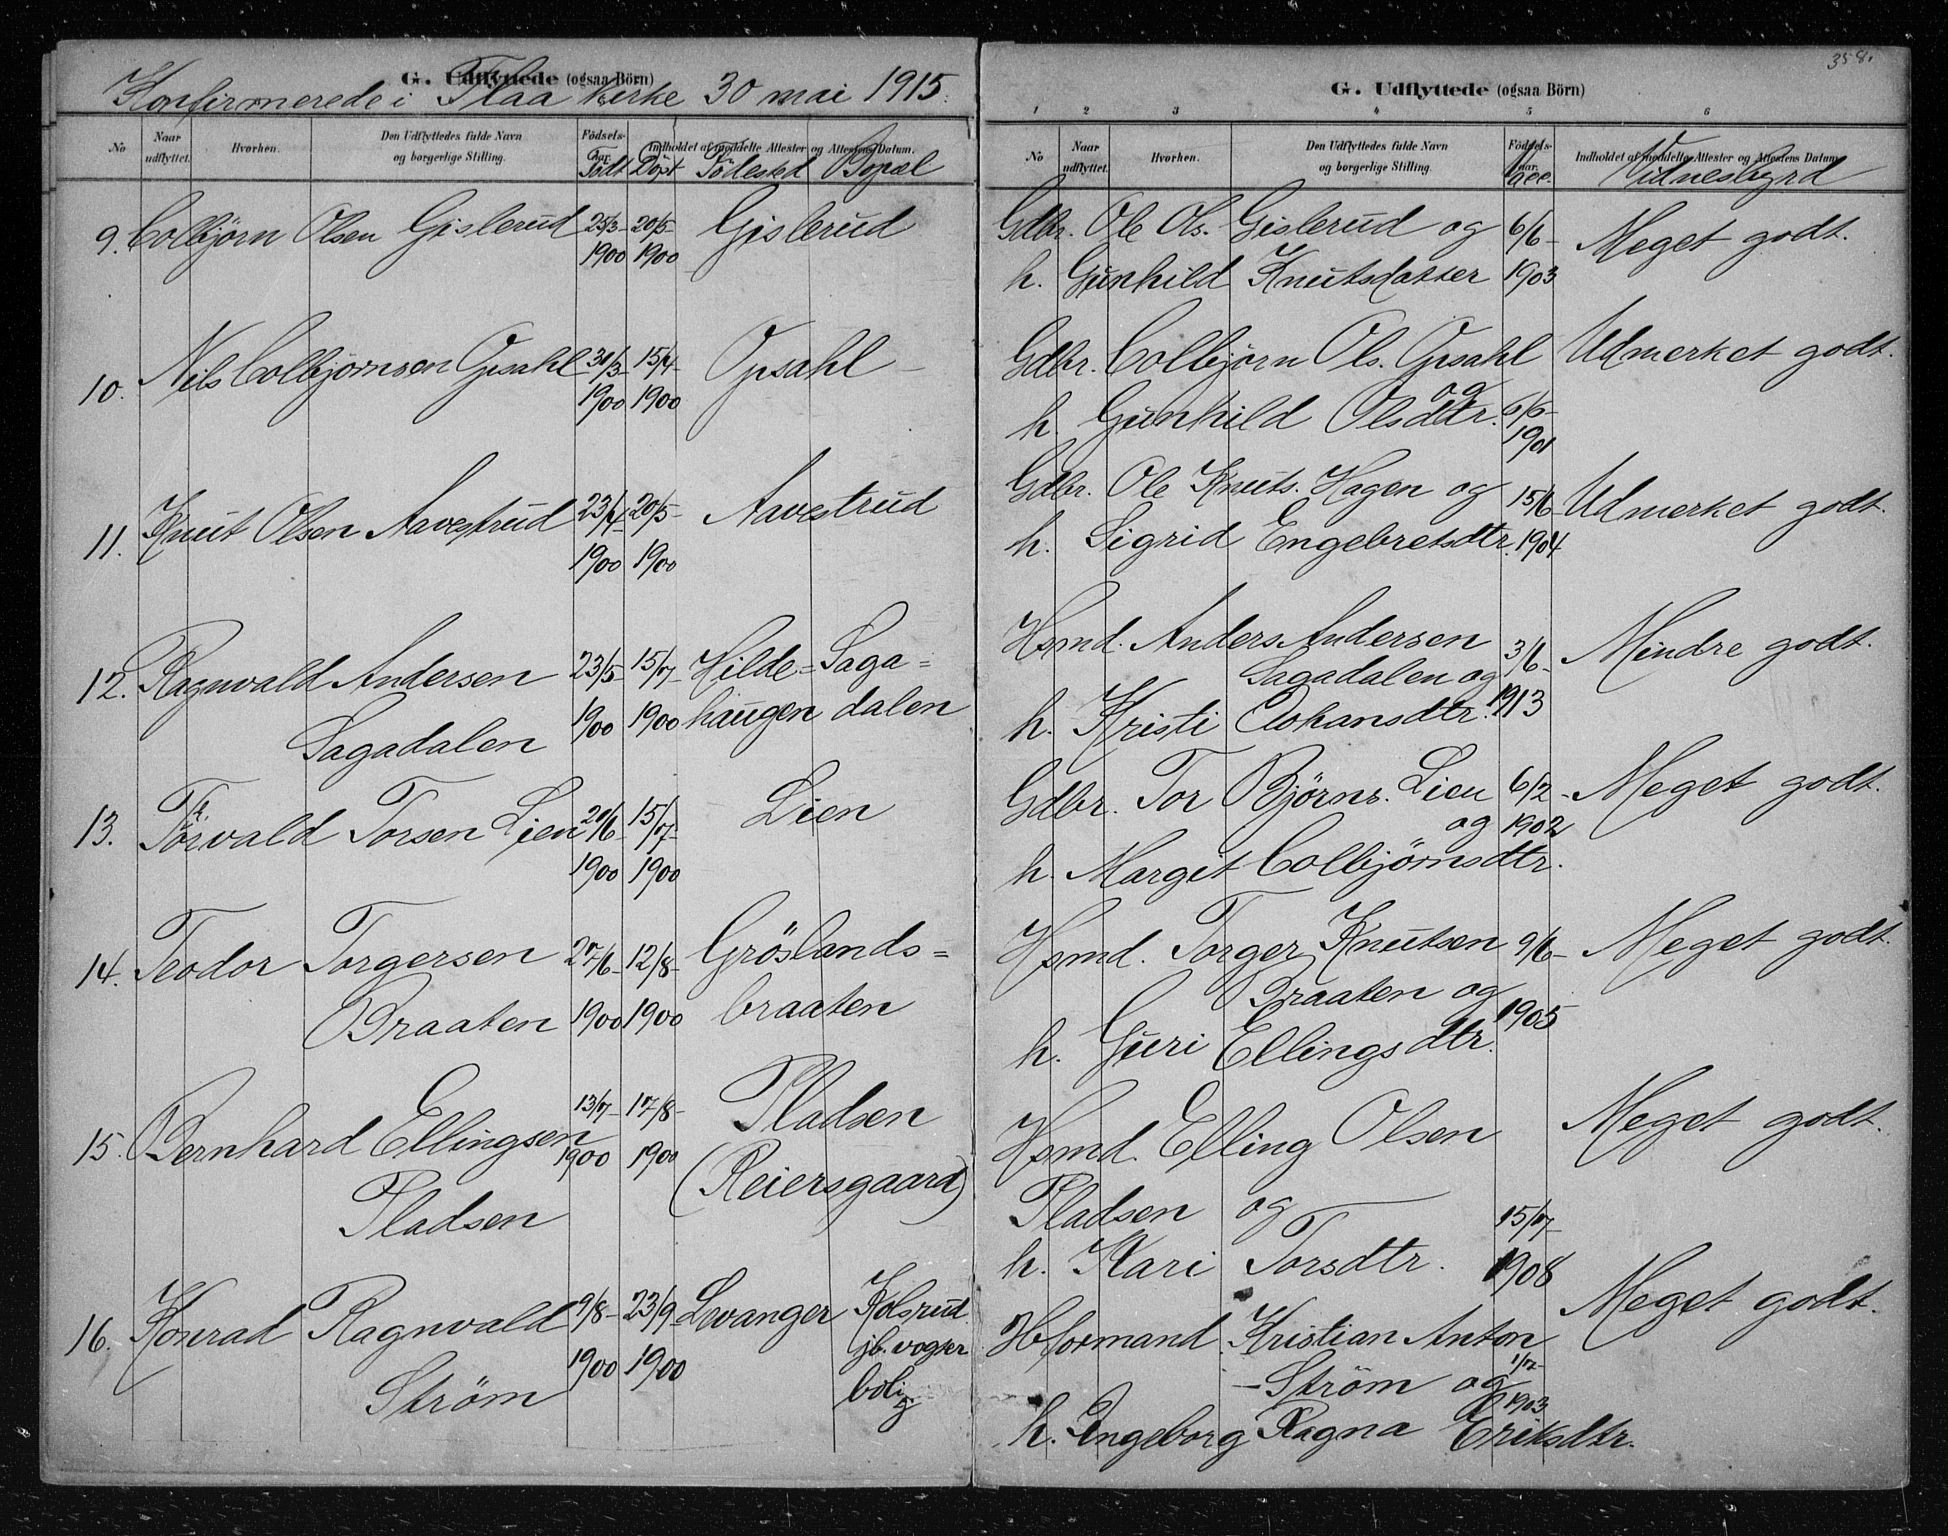 G. Udflyttede (ogsaa Börn)
Konfirmerede i Flaa kirke 30 mai 1915.
No Naar udflyttet. Hvorhen. Den Udflyttedes fulde Navn og borgerlige Stilling. Födsels-aar. Indholdet af meddelte Attester og Attestens Datum.
Född Döpt Födested Bopæl
9. Colbjørn Olsen Gislerud 25/3- 20/5- Gislerud
1900 1900
10. Nils Colbjørnsen Opsahl 31/3- 15/4- Opsahl
1900 1900
11. Knut Olsen Aavestrud 23/4- 20/5- Aavestrud
1900 1900
12. Ragnvald Andersen 23/5- 15/7- Hilde- Saga=
Sagadalen 1900 1900 haugen dalen
13. Torvald Torsen Lien 20/6- 15/7- Lien
1900 1900
14. Teodor Torgersen 27/6- 12/8- Gröslands=
Braaten 1900 1900 braaten
15. Bernhard Ellingsen 13/7- 17/8- Pladsen
1900 1900 (Reiersgaard)
Pladsen
16. Konrad Ragnvald 9/8- 23/9- Levanger Kolsrud
1900 1900 jb.vogter
Strøm bolig
358.
G. Udflyttede (ogsaa Börn)
1 2 3 4 5 6
No Naar udflyttet. Hvorhen. Den Udflyttedes fulde Navn og borgerlige Stilling. Födsels-aar. Indholdet af meddelte Attester og Attestens Datum.
Vacc. Vidnesbyrd
Gdbr. Ole Ols. Gislerud og 6/6- Meget godt.
h. Gunhild Knutsdatter 1903
Gdbr. Colbjørn Ols. Opsahl Udmerket godt.
og
h. Gunhild Olsdtr. 6/6-
1901
Gdbr. Ole Knuts. Hagen og 15/6- Udmerket godt.
h. Sigrid Engebretsdtr. 1904
Hsmd. Anders Andersen 3/6- Mindre godt.
Sagadalen og
h. Kristi Johansdtr. 1913
Gdbr. Tor Bjørns. Lien 6/2- Meget godt.
og 1902
h. Margit Colbjørnsdtr.
Hsmd. Torger Knutsen 9/6- Meget godt.
Braaten og 1905
h. Guri Ellingsdtr.
Hsmd. Elling Olsen Meget godt.
Pladsen og 15/7-
h. Kari Torsdtr. 1908
Formand Kristian Anton Meget godt.
-Strøm og 1903
h. Ingeborg Ragna Eriksdtr.